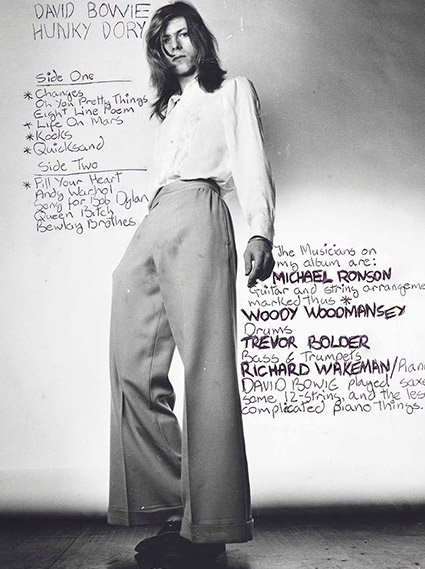 DAVID BOWIE
HUNKY DORY
Side One
* Changes
Oh You Pretty Things
Eight Line Poem
+ Life On Mars
* Kooks
* Quicksand
Side Two
* Fill Your Heart
Andy Warhol
Song for Bob Dylan
Queen Bitch
Bewlay Brothes
The Musicians on
my album are:
MICHAEL RONSON
Guitar and string arrangeme
marked thus *
WOODY WOODMANSEY
Drums
TREVOR BOLDER
Bass & Trumpets
RICHARD WAKEMAN/Pian
DAVID BOWIE played saxe
some 12-string, and the les
complicated piano things.